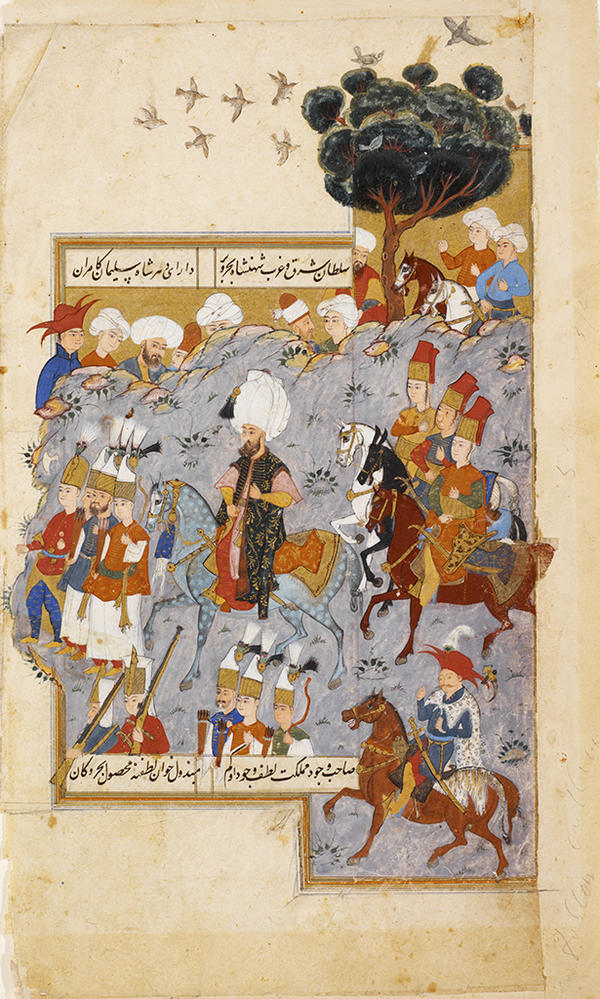 سلطان شرق و غرب شهنشاه بحر و بر دارای دهر شاه سلیمان کامران
صاحب وجود مملکت لطف و جود مبذول خوان لطفنه محصول بحر و کان